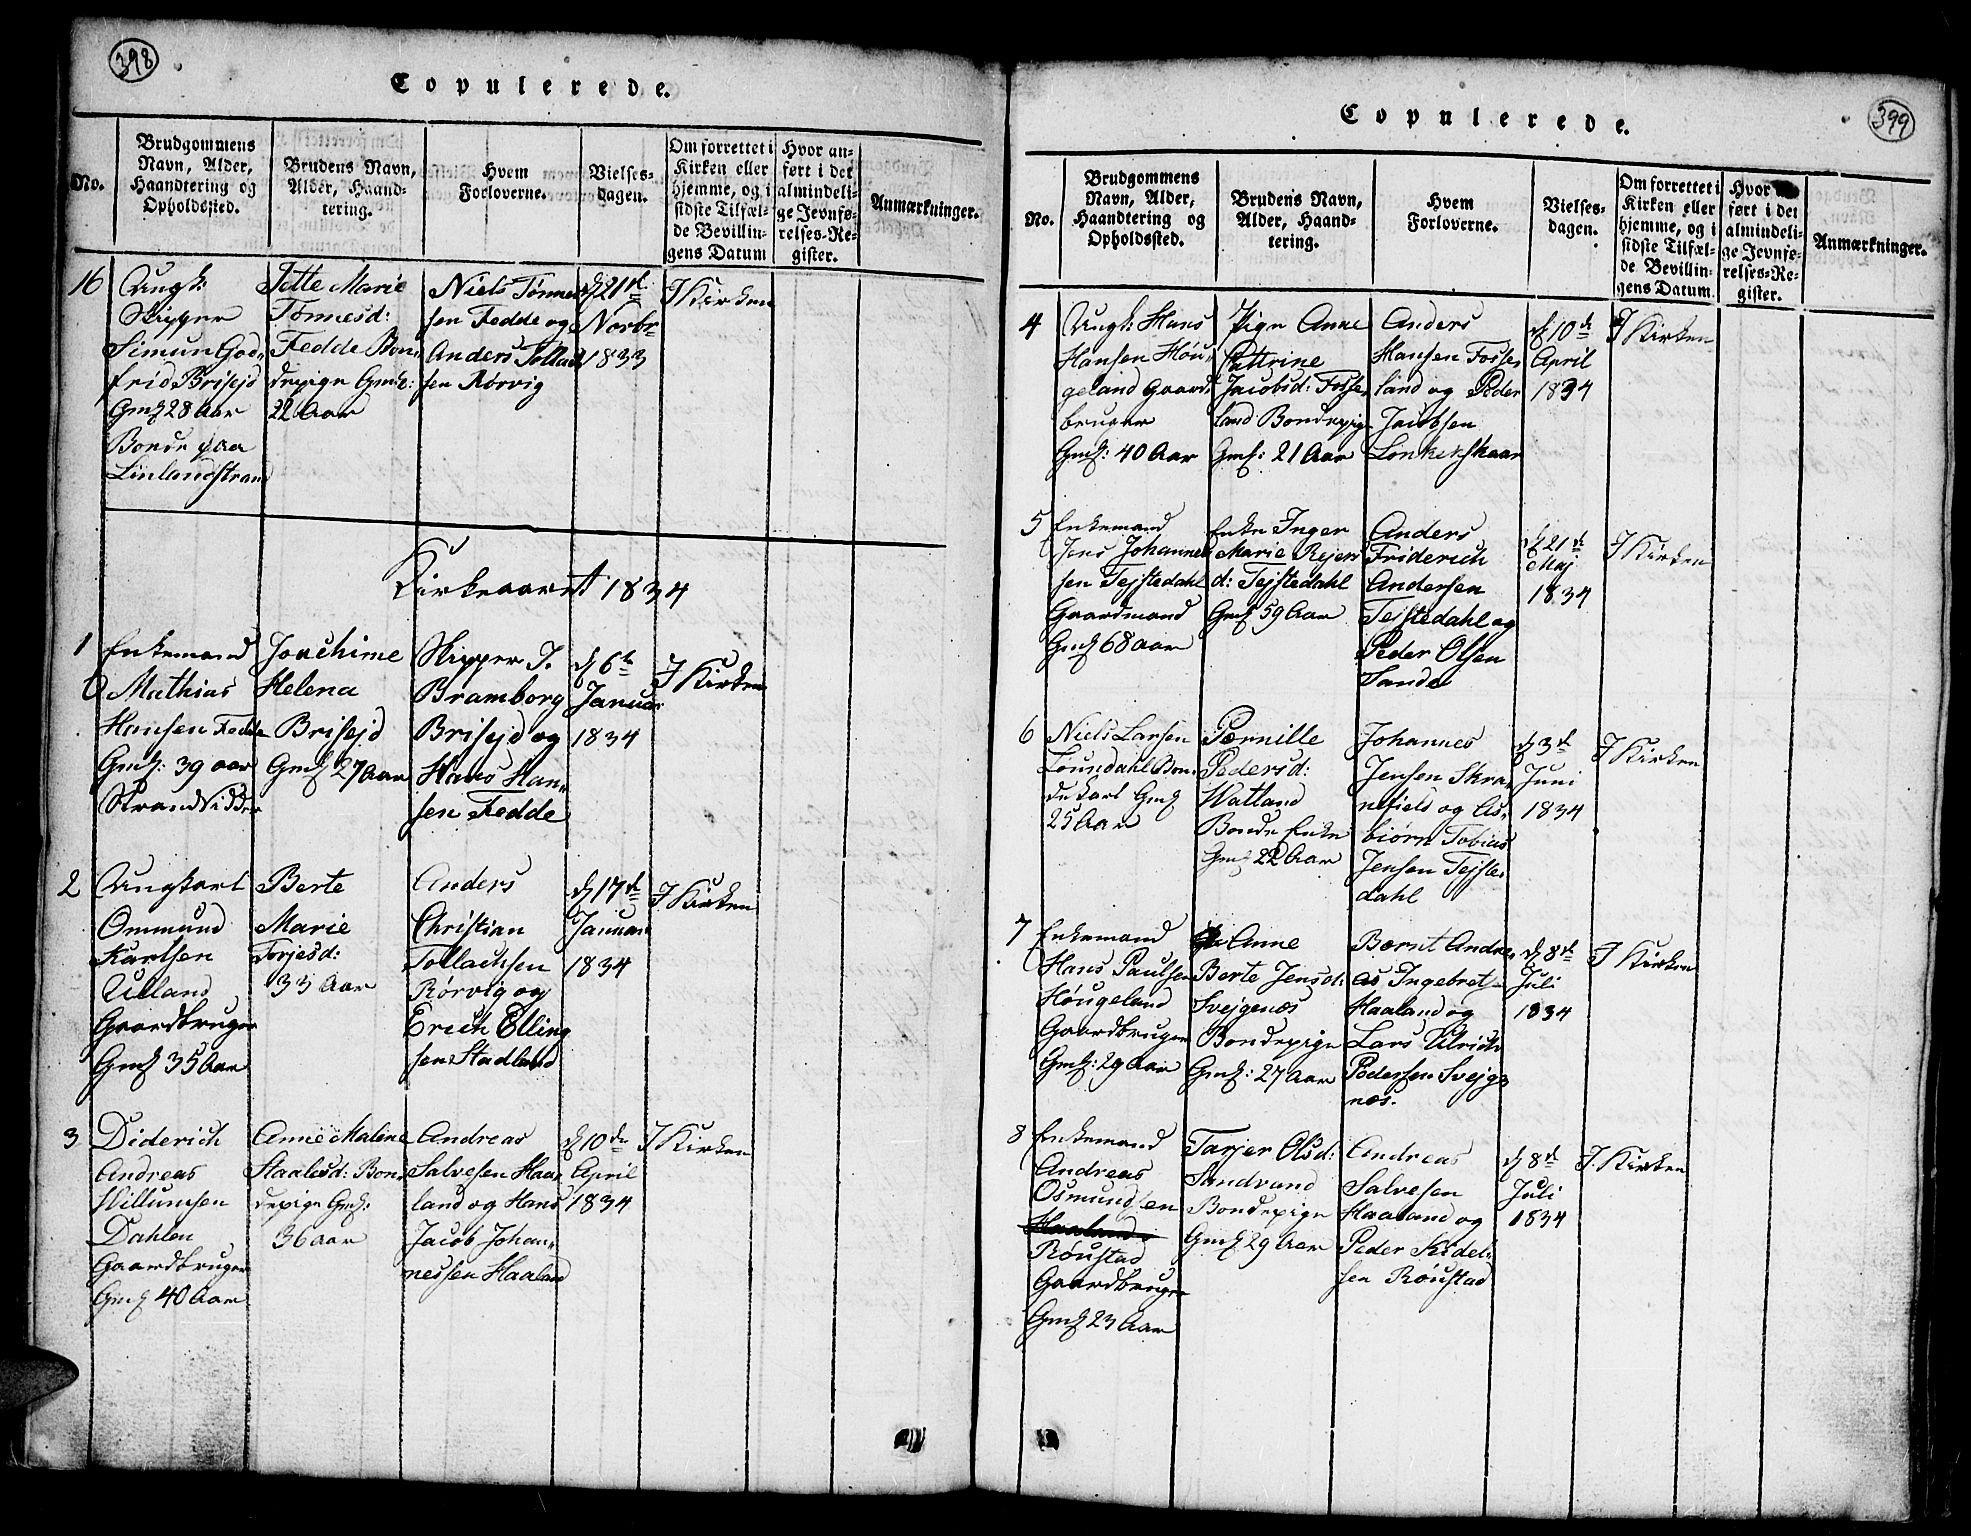 398
Copulerede.
No.
Brudgommens
Navn, Alder,
Haandtering og
Opholdssted.
Brudens Navn,
Alder, Haand-
tering.
Hvem
Forloverne.
Vielses-
dagen.
Om forrettet i
Kirken eller
hjemme, og i
sidste Tilfæl-
de Bevillin-
gens Datum
Hvor an-
ført i det
almindeli-
ge Jevnfø-
relses-Re-
gister.
Anmærkninger.
16
Ungk:
Skipper
Simun God-
frid Brisejd
Gmlf 28 Aar
Bonde paa
Linlandstrand
Tette Marie
Tønnesd:
Fedde Bon-
depige Gmlf:
22 Aar
Niels Tønne-
sen Fedde og
Anders Tollac
sen Rørvig
d 21d
Novbr
1833
I Kirken
Kirkeaaret 1834
1
Enkemand
Mathias
Hansen Fedde
Gmlf: 39 aar
Strandsidder
Joachime
Helena
Brisejd
Gmlf 27 Aar
Skipper J.
Bramborg
Brisejd og
Hans Han-
sen Fedde
d 6te
Januar
1834
I Kirken
2
Ungkarl
Ommund
Karlsen
Uland
Gaardbruger
Gmlf 35 Aar
Berte
Marie
Torjesd:
33 Aar
Anders
Christian
Tollachsen
Rørvig og
Erich Elling
sen Stadland
d 17d
Januar
1834
I Kirken
3
Diderich
Andreas
Villumsen
Dahlen
Gaardbruger
Gmlf 40 Aar
Anne Maline
Staalesd: Bon-
depige Gmlf:
36 aar
Andreas
Salvesen Haa-
land og Hans
Jacob Johan-
nessen Haaland
d 10de
April
1834
I Kirken
399
Copulerede.
No.
Brudgommens
Navn, Alder,
Haandtering og
Opholdssted.
Brudens Navn,
Alder, Haand-
tering.
Hvem
Forloverne.
Vielses-
dagen.
Om forrettet i
Kirken eller
hjemme, og i
sidste Tilfæl-
de Bevillin-
gens Datum.
Hvor
ført i det
almindeli-
ge Jevnfø-
relses-Re-
gister.
Anmærkninger.
4
Ungk: Hans
Hansen Høu-
geland Gaard
bruger
Gmlf: 40 Aar
Pige Anne
Cathrine
Jacobsd: Fosse-
land Bondepige
Gmlf: 21 Aar
Anders
Hansen Fosse-
land og Peder
Jacobsen
Lonkerskaar
d 10de
April
1834
I Kirken
5
Enkemand
Jens Johanne
sen Tejstedahl
Gaardmand
Gmlf 68 aar
Enke Inger
Marie Rejers
d: Tejstedahl
Gmlf 59 Aar
Anders
Friderich
Andersen
Tejstedahl og
Peder Olsen
Sande
d 21d
Maj
1834
I Kirken
6
Niels Larsen
Løundahl Bon-
dekarl Gmlf
25 Aar
Pernille
Pedersd:
Watland
Bonde Enke
Gmlf 22 Aar
Johannes
Jensen Skra-
nefield og As-
biørn Tobias
Jensen Tejste-
dahl
d 3d
Juni
1834
I Kirken
7
Enkemand
Hans Paulsen
Høugeland
Gaardbruger
Gmlf: 29 Aar
Anne
Berte Jensd:
Svejgenæs
Bondepige
Gmlf: 27 Aar
Bernt Andre-
as Ingebret-
Haaland og
Lars Ulrich
Pedersen Svejge
næs.
d 8d
Juli
1834
I Kirken
8
Enkemand
Andreas
Osmundsen
Haaland
Røustad
Gaardbruger
Gmlf 23 Aar
Tarjer Olsd:
Sandvand
Bondepige
Gmlf 29 Aar
Andreas
Salvesen
Haaland og
Peder Kidel-
sen Røustad
d 8d
Juli
1834
I Kirken